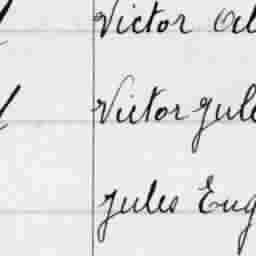 Victor al
Victor jule
jules Eug